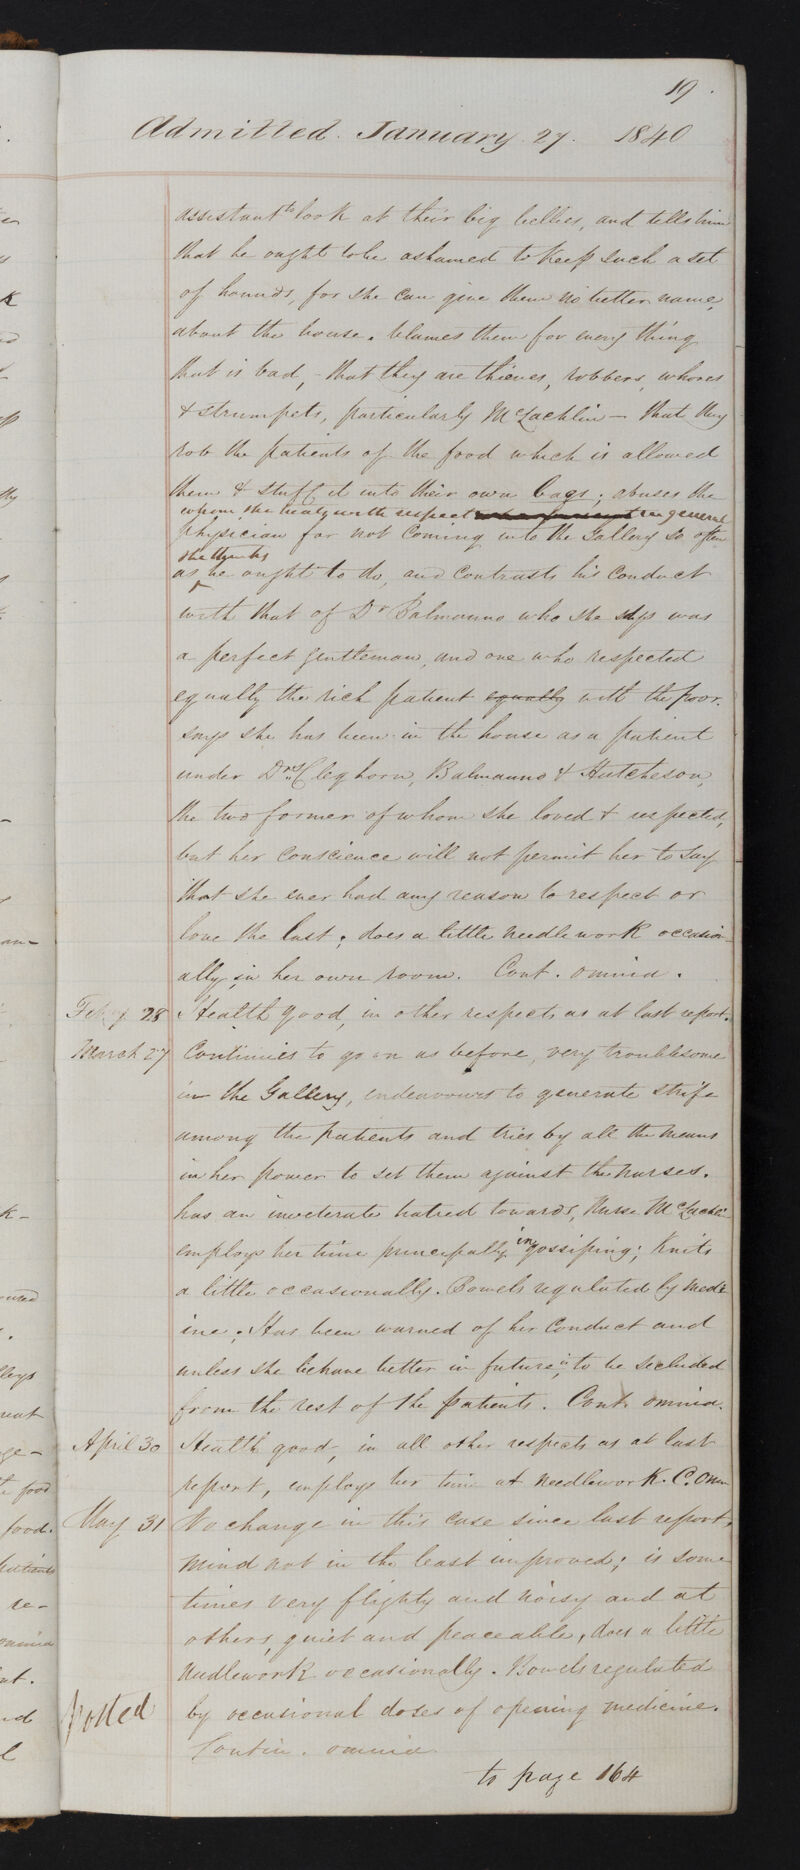 19.
Admitted. January. 27. 1840
assistant to look at their big bellies, and tells him
that he ought to be ashamed to keep such a set
of hounds, for she can give them no better name,
about the house. blames them for every thing
that is bad, - that they are thieves, robbers, whores
& strumpets, particularly McLachlin - that they
rob the patients of the food which is allowed
them & stuff it into their own bags; abuses the
whom she treats with respect in general
physician for not coming into the Gallery so often
she thinks
as he ought to do, and contrasts his conduct
with that of Dr Balmanno who she says was
a perfect gentleman, and one who respected
equally the rich patient equally with the poor.
says she has been in the house as a patient
under Drs Cleghorn, Balmanno & Hutcheson,
the two former of whom she loved & respected,
but her conscience will not permit her to say
that she ever had any reason to respect or
love the last; does a little needlework occasion-
ally in her own room. Cont. omnia.
Feby 28 Health good, in other respects as at last report.
March 27 Continues to go on as before, very troublesome
in the Gallery, endeavours to generate strife
among the patients and tries by all the means
in her power to set them against the nurses.
has an inveterate hatred towards, Nurse McLachlin
employs her time principally in gossiping; knits
a little occasionally. Bowels regulated by medic
ine; Has been warned of her conduct and
unless she behave better in future is to be secluded
from the rest of the patients. Cont. omnia.
April 30 Health good, in all other respects as at last
report, employs her time at needlework. C. Omn
May 31 No change in this case since last report,
mind not in the least improved; is some
times very flighty and noisy and at
others, quiet and peaceable, does a little
needlework occasionally. Bowels regulated
by occasional doses of opening medicine.
posted
Contin. omnia
to page 164